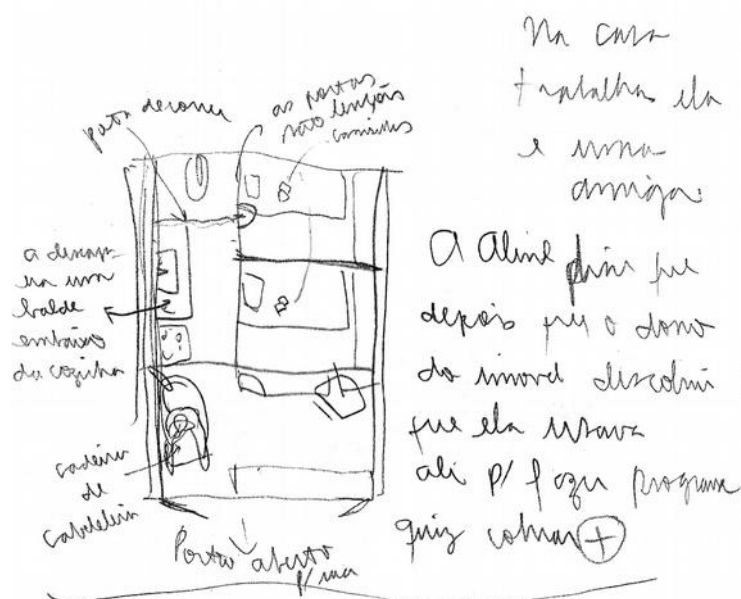 Na casa
trabalha ela
e uma
amiga.
A Aline disse que
depois que o dono
do imovel descobriu
que ela usava
ali p/ fazer programa
quiz cobrar +
as portas
são lençóis
a descarga
era um
balde
embaixo
da cozinha
cadeira
de
cabeleleira
Porta aberta
p/ rua